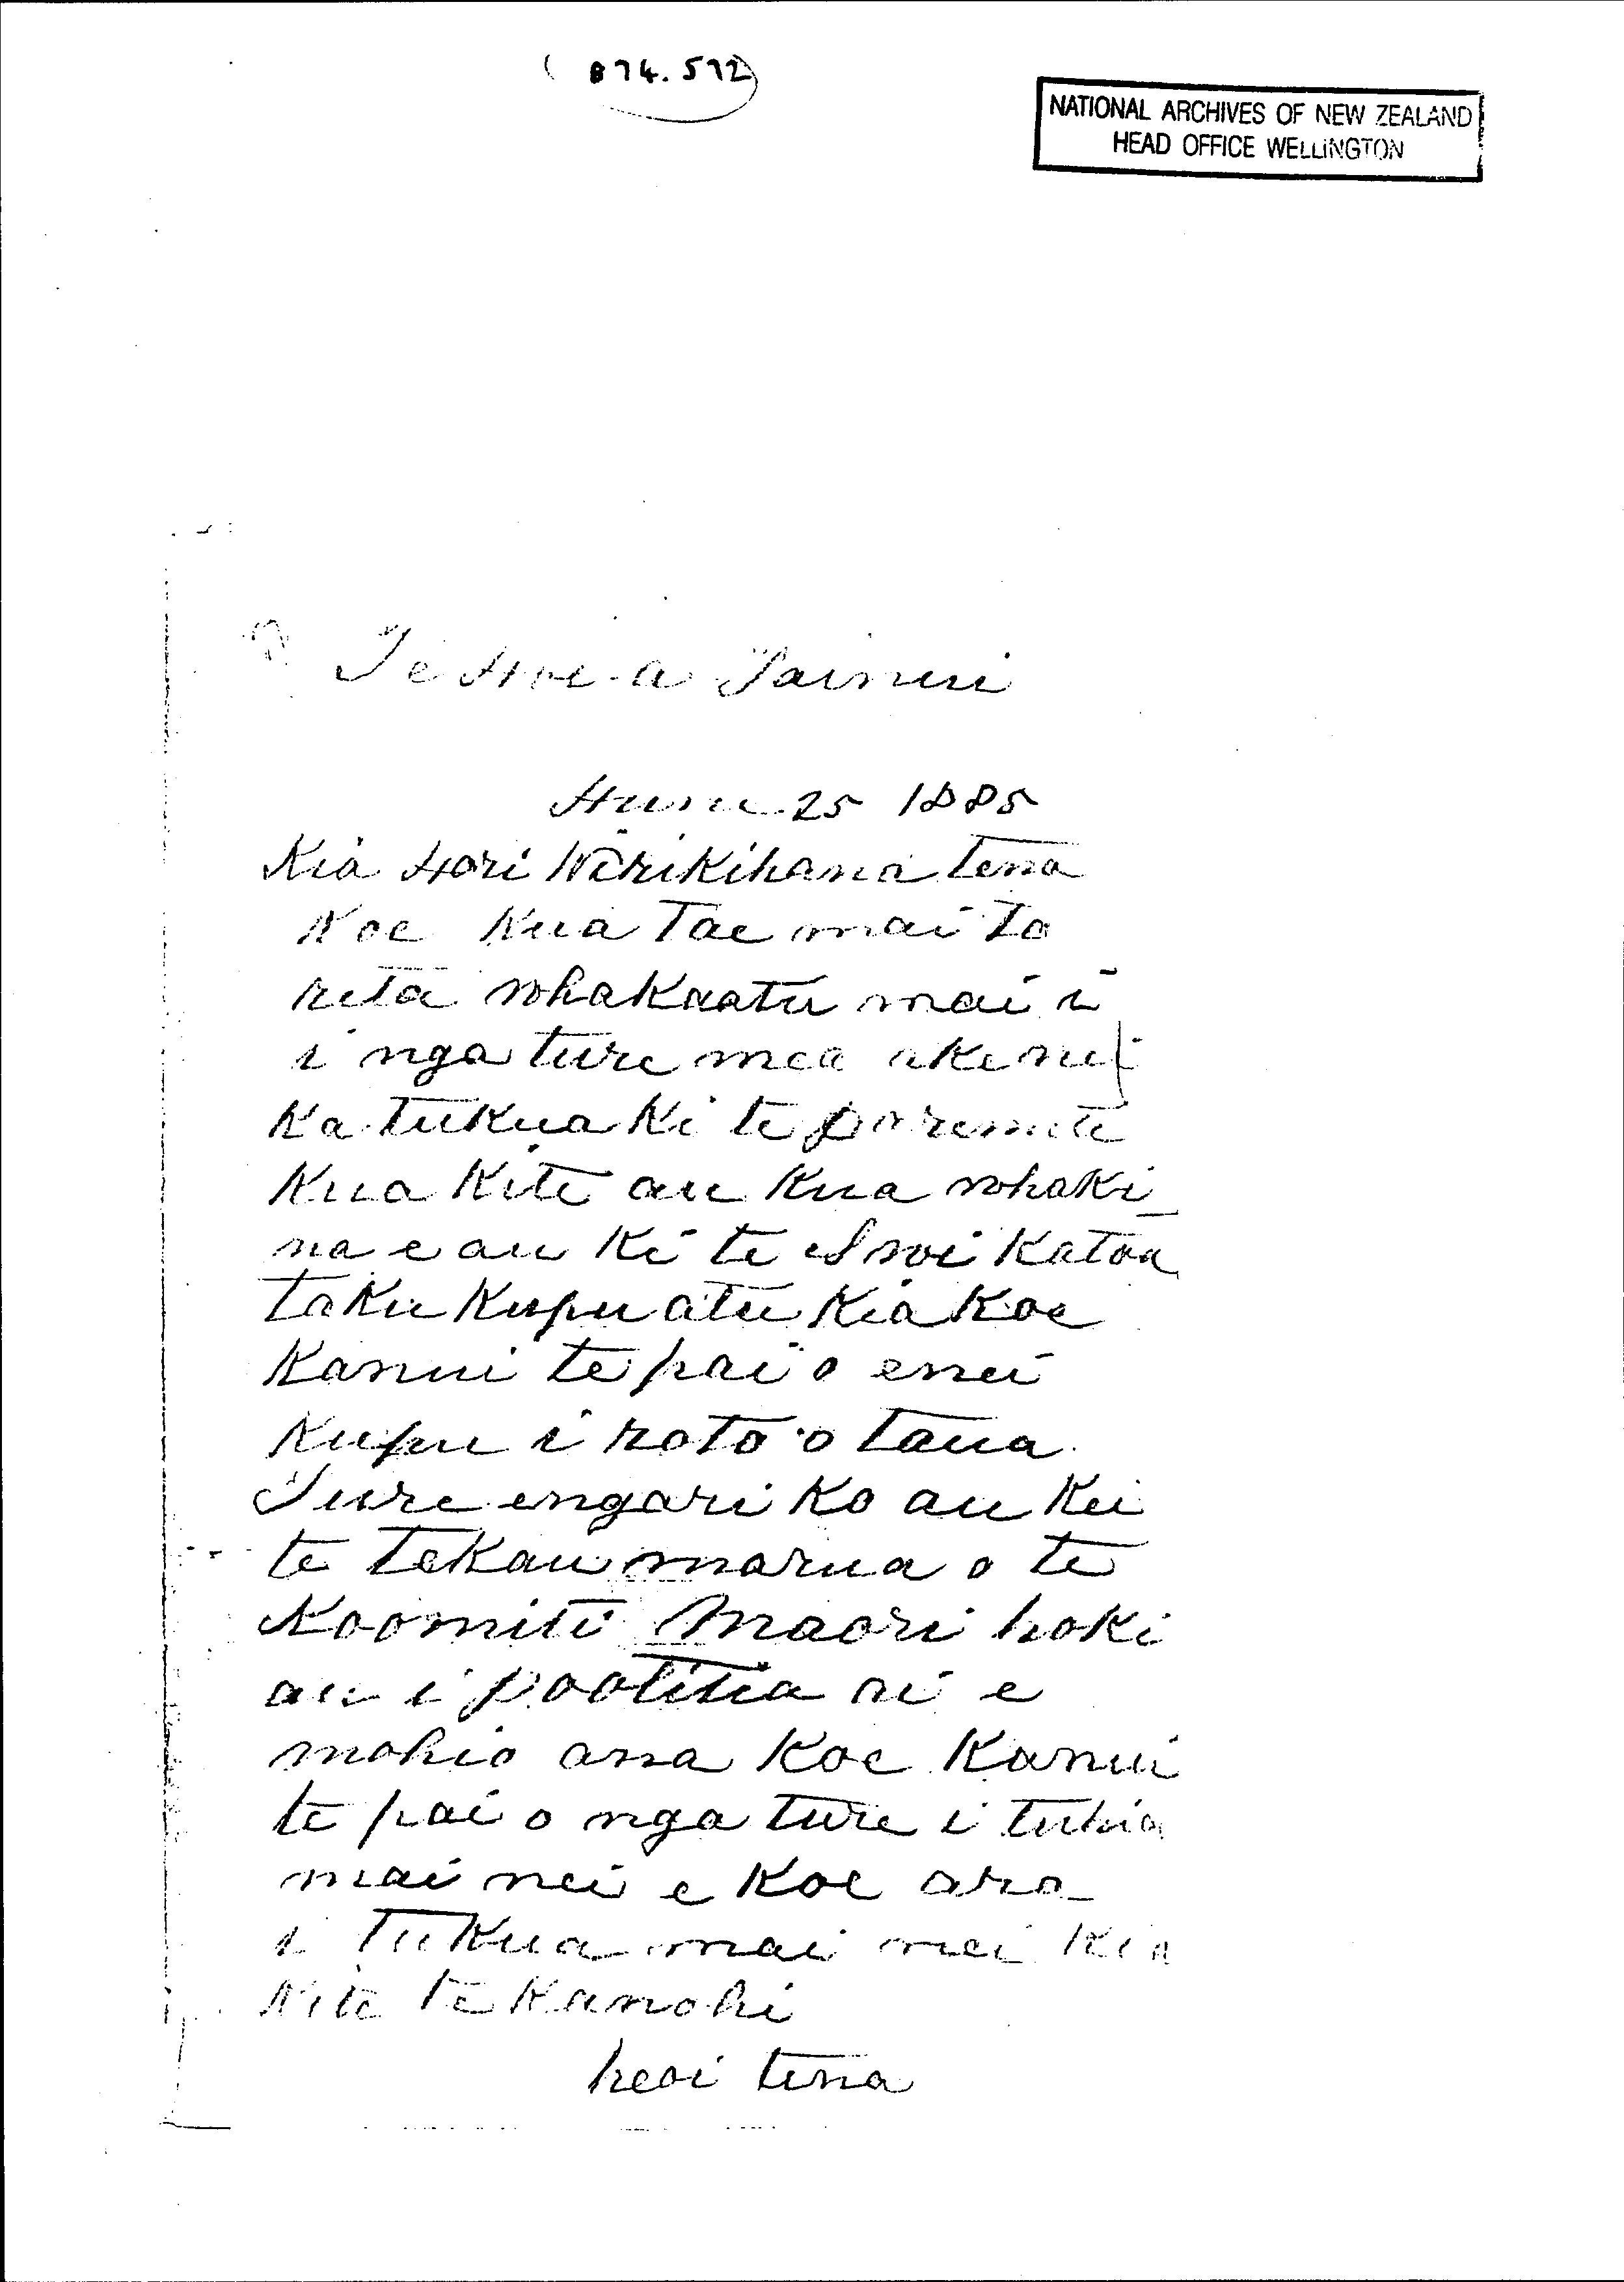 (874.572)
NATIONAL ARCHIVES OF NEW ZEALAND
HEAD OFFICE WELLINGTON
Te Hoe a Tainui
Hune 25 1885
Kia Hori Wirikihana tena
Koe Kua Tae mai To
reta whakaatu mai i
i nga ture mea ake nei
Ka tukua ki te paremete
Kua Kite au Kua whaki_
na e au Ki te Iwi Katoa
taku Kupu atu Kia Koe
Kanui te pai o enei
Kupu i roto o taua
Ture engari Ko au Kei
te Tekau marua o te
Koomiti Maori hoki
au i pootitia ai e
mohio ana Koe Kanui
te pai o nga ture i tuhia
mai nei e Koe ara
i Tukua mai nei Kia
Kite te Kanohi
heoi tena